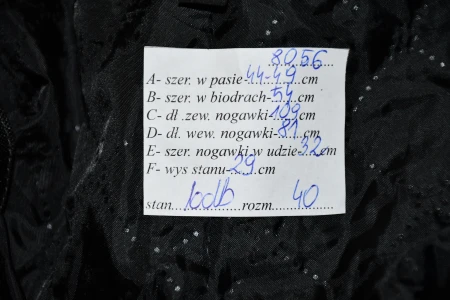 8056
A- szer. w pasie-44-49.cm
B- szer. w biodrach-54.cm
C- dł .zew. nogawki-109.cm
D- dł. wew. nogawki-81.cm
E- szer. nogawki w udzie-32cm
F- wys stanu-29.cm
stan....bdb....rozm....40